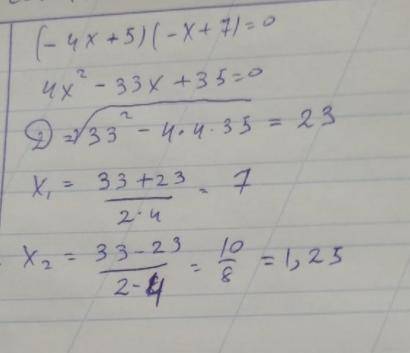 (-4x+5)(-x+7)=0
4x² - 33x + 35 = 0
D = √33² - 4·4·35 = 23
x₁ = (33+23)/(2·4) = 7
x₂ = (33-23)/(2·4) = 10/8 = 1,25